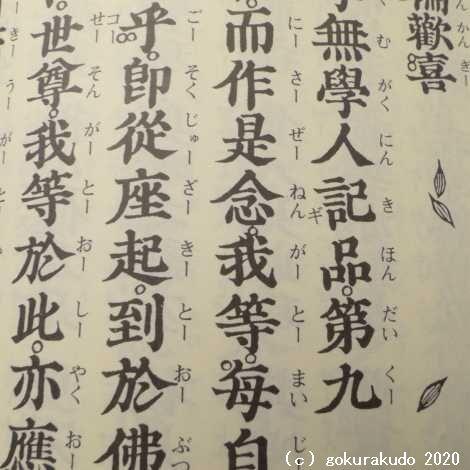 かんぎー
歡喜
むがくにんきほんだいくー
無學人記品。第九
ギ
にーさーぜーねんがーとーまいじ
而作是念。我等。每自
ごーそくじゅーざーきーとーおーぶつ
乎。即從座起。到於佛
コー
せーそんがーとーおーしーやくおー
世尊。我等於此。亦應
(c) gokurakudo 2020